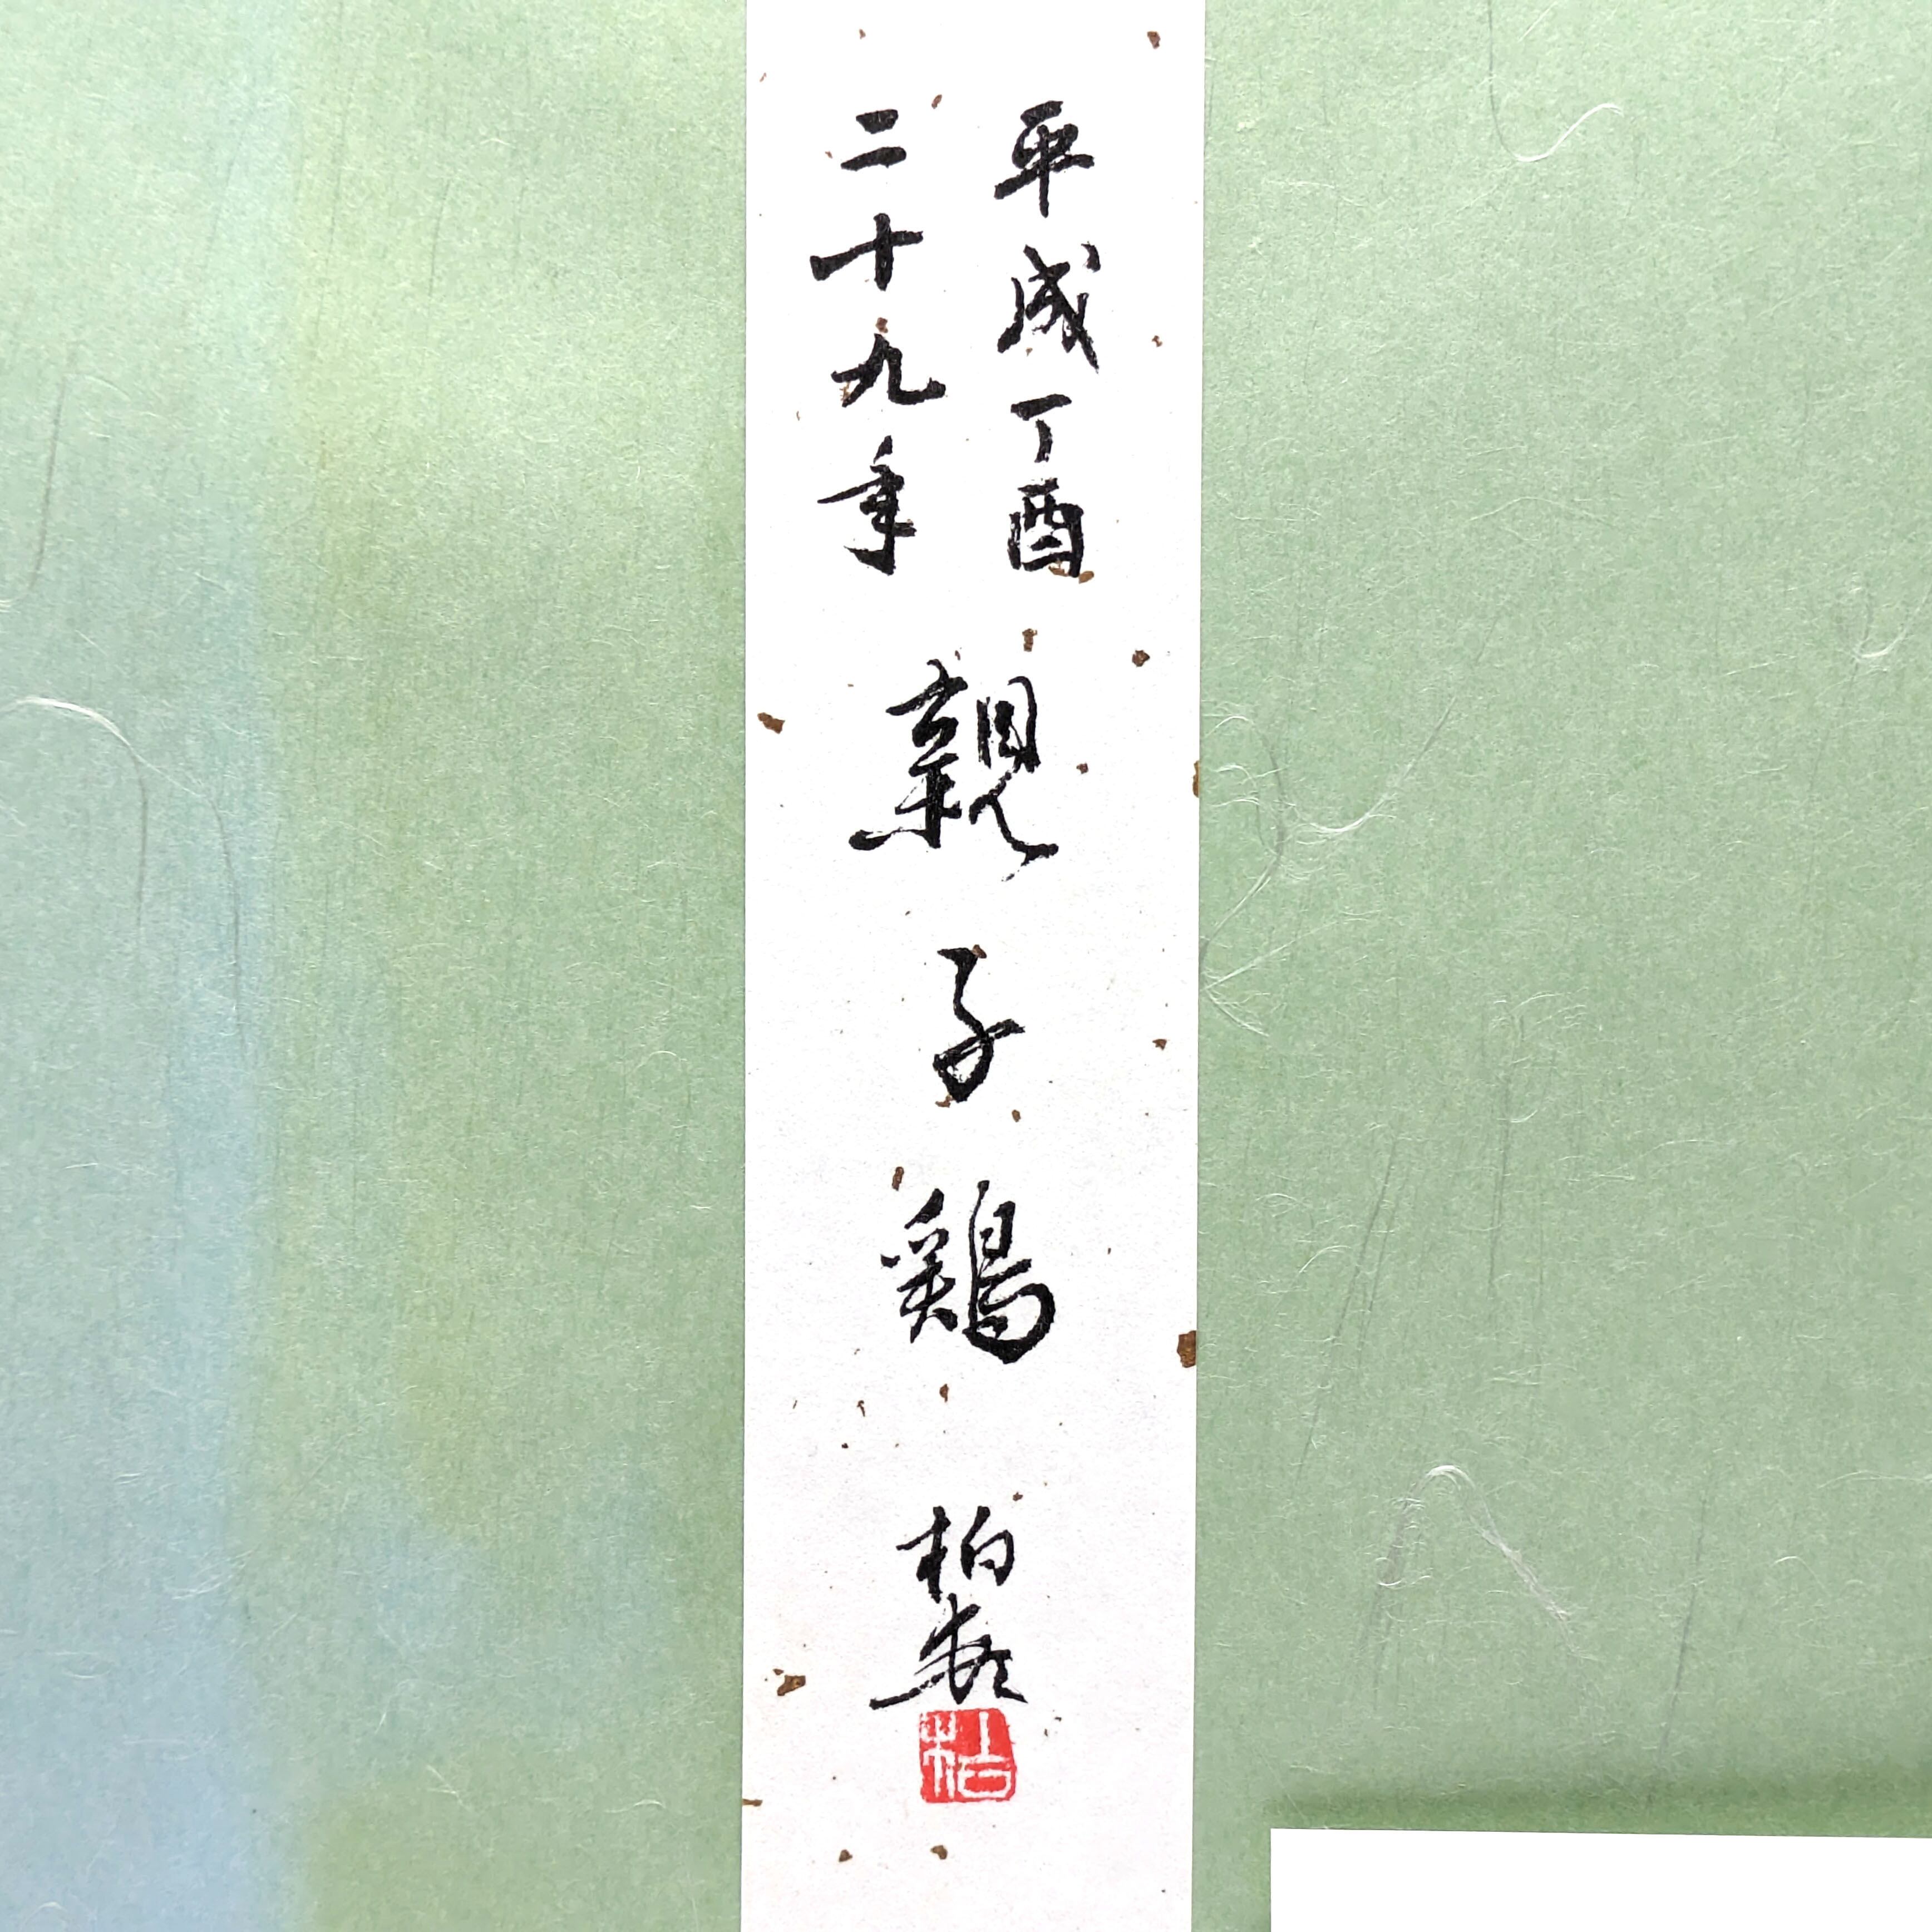 平成丁酉
二十九年
親子鶏
柏